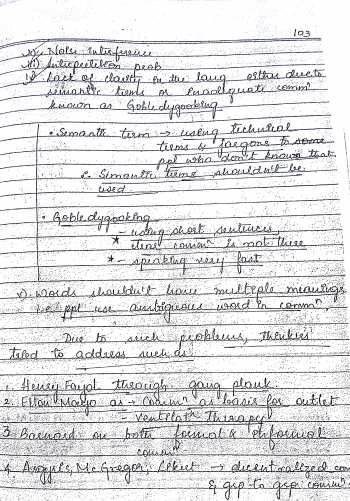 103
ii) Noisy Interference
iii) Interpretation prob
iv) Lack of clarity in the lang either due to
semantic terms or inadequate commⁿ
known as Gobledygooking.
• Semantic term → using technical
terms & jargons to some
ppl who don't know that
∴ Semantic terms shouldn't be
used
• Gobledygooking
- using short sentences,
* clear commⁿ is not there
* - speaking very fast
v) Words shouldn't have multiple meanings
i.e ppl use ambiguous word in commⁿ.
Due to such problems, thinkers
tried to address such as
1. Henry Fayol through gang plank.
2. Elton Mayo as → Commⁿ as basis for outlet
- Ventilatⁿ Therapy
3. Barnard on both formal & informal
commⁿ
4. Argyris, McGregor, Likert → decentralized com
& grp to grp commⁿ